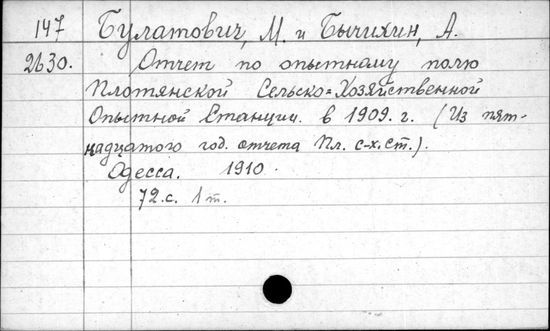 147 Булатович, М. и Бычихин, А.
2630. Отчет по опытному полю
Плотянской Сельско=Хозяйственной
Опытной Станции. в 1909. г. (Из пят-
надцатого год. отчета Пл. с-х. ст.).
Одесса. 1910.
72.с. 1 т.